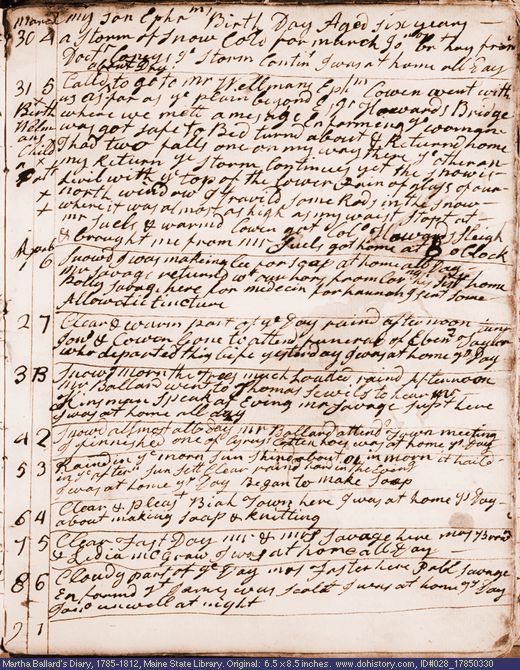 March my son Ephrm Birth Day Aged six years
30 4 a storm of snow Cold for march Jon brot hay from
Doctr Coney ye storm Contin I was at home all Day
about Day
31 5 Calld to go to mr Wellmans Ephm Cowen went with
us as far as ye plain beyond Esqr Howards Bridge
Birth where we mett a message informing ye woman
Wilman was got safe to Bed turnd about & Returnd home
Child I had two falls one on my way there ye other on
my Return ye storm Continues yet the snow is
levil with ye top of the lower pain of glass of our
x north window I travild some Rods in the snow
x where it was almost as high as my waist stopt at
mr Juels & warmd Cowen gut Colo Howards Sleigh
& brought me from mr Juels got home at 8 o Clock
April
1 6 Snowd I was at home all Day
mr Savage returnd home
Polly Savage here for medecin for I sent some
tincture
2 7 Clear & warm part of ye Day raind afternoon
Jont & Cowen gone to attend funeral of Ebenr Taylor
who departed this life yesterday I was at home ye Day
3 B Snowd morn the trees much loaded raind afternoon
mr Ballard went to Thomas Sewels to hear mr
Kinsman Speak at Evning mr Savage supt here
I was at home all day
4 2 Snowd almost all day mr Ballard attend Town meeting
I finnished one of Cyruss Cotten hoes was at home ye Day
5 3 Raind in ye morn sun shind about 10 in morn it haild
in ye aftern sun sett Clear raind hard in the Evng
I was at home ye Day Began to make Soap
6 4 Clear & pleast Biah Town here I was at home ye Day
about making soap & knitting
7 5 Clear Fast Day mr & mrs Savage here mrs
& Lidia mcGraw I was at home all Day
8 6 Cloudy part of ye Day mrs Foster here Rebl Savage
Enformd yt James was scalt I was at home ye Day
Jont unwell at night
9 7
Martha Ballard's Diary, 1785-1812, Maine State Library. Original: 6.5 x 8.5 inches. www.dohistory.com, ID#028_17850330